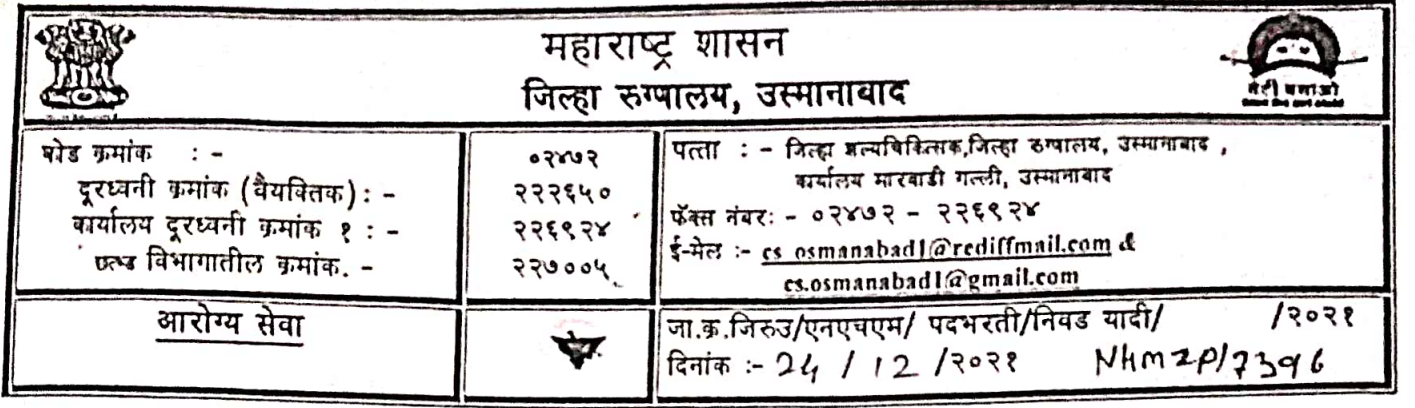 महाराष्ट्र शासन
जिल्हा रुग्णालय, उस्मानाबाद
बेटी बचाओ
कोड क्रमांक : -
०२४७२
दूरध्वनी क्रमांक (वैयक्तिक) : -
२२२६५०
कार्यालय दूरध्वनी क्रमांक १ : -
२२६९२४
विभागातील क्रमांक. -
२२७००५
पत्ता : - जिल्हा शल्यचिकित्सक,जिल्हा रुग्णालय, उस्मानाबाद ,
कार्यालय मारवाडी गल्ली, उस्मानाबाद
फॅक्स नंबर: - ०२४७२ - २२६९२४
ई-मेल :- cs_osmanabad1@rediffmail.com &
cs.osmanabad1@gmail.com
आरोग्य सेवा
जा.क्र.जिरुउ/एनएचएम/ पदभरती/निवड यादी/ /२०२१
दिनांक :- 24 / 12 /२०२१ NHMZP/7396